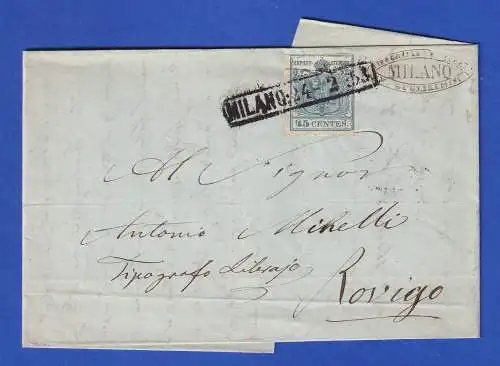 MILANO
MILANO. 24 2
45 CENTES
Al Signor
Antonio Minelli
Tipografo Librajo
Rovigo